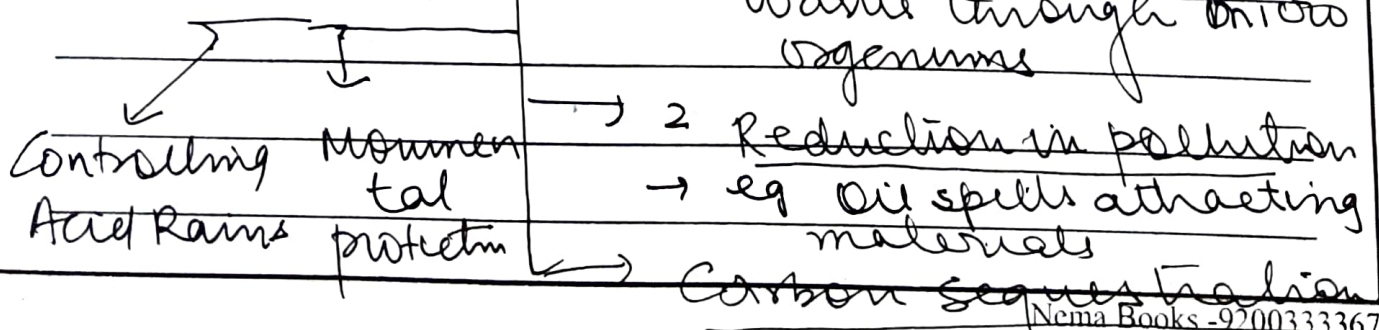 waste through micro
orgenisms
2 Reduction in pollution
→ eg Oil spills attracting
materials
Carbon sequestration
Controlling
Acid Rains
Monumen
tal
protectm
Nema Books -9200333367